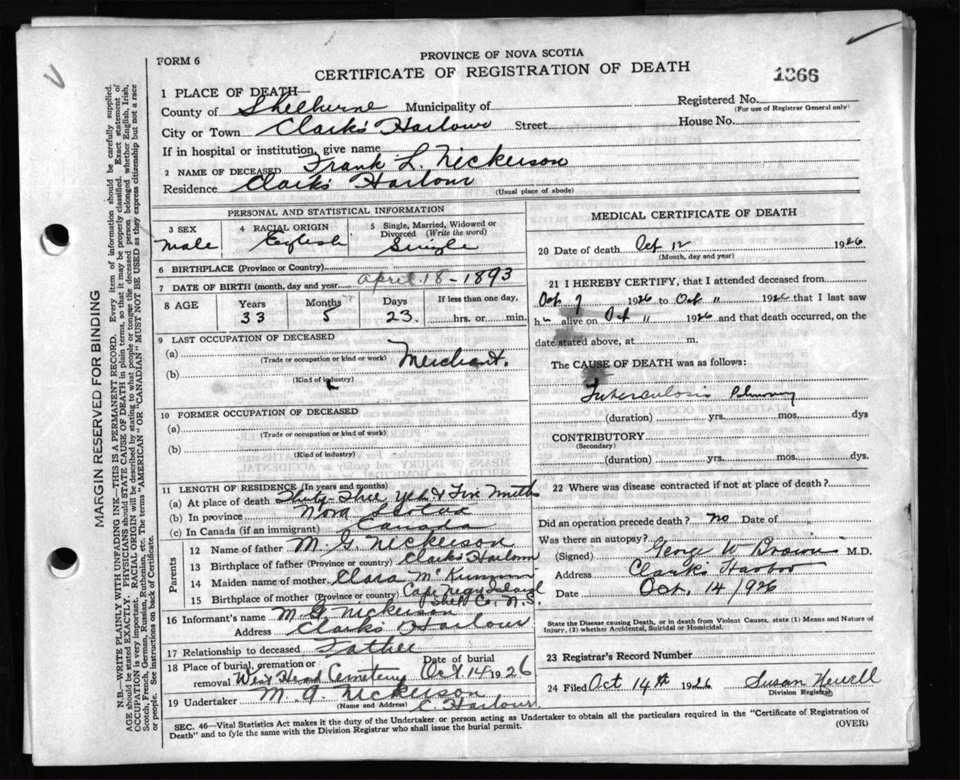 PROVINCE OF NOVA SCOTIA
FORM 6
CERTIFICATE OF REGISTRATION OF DEATH
1366
1 PLACE OF DEATH—
County of Shelburne Municipality of
Registered No.
(For use of Registrar General only)
City or Town Clark's Harbour Street House No.
If in hospital or institution, give name
2 NAME OF DECEASED Frank L. Nickerson
Residence Clark's Harbour
(Usual place of abode)
PERSONAL AND STATISTICAL INFORMATION
3 SEX Male
4 RACIAL ORIGIN English
5 Single, Married, Widowed or Divorced (Write the word) Single
6 BIRTHPLACE (Province or Country)
7 DATE OF BIRTH (month, day and year) April 18-1893
8 AGE Years 33 Months 5 Days 23 If less than one day, hrs. or min.
9 LAST OCCUPATION OF DECEASED
(a) Merchant.
(Trade or occupation or kind or work)
(b)
(Kind of industry)
10 FORMER OCCUPATION OF DECEASED
(a)
(Trade or occupation or kind of work)
(b)
(Kind of industry)
11 LENGTH OF RESIDENCE (In years and months)
(a) At place of death Thirty-Three yrs &
(b) In province Nova Scotia
(c) In Canada (if an immigrant) Canada
Parents
12 Name of father M. G. Nickerson
13 Birthplace of father (Province or country) Clark's Harbour
14 Maiden name of mother Clara M.
15 Birthplace of mother (Province or country) Cape Negro Island
Shel Co. N.S.
16 Informant's name M G Nickerson
Address Clark's Harbour
17 Relationship to deceased Father
18 Place of burial, cremation or removal West Head Cemetery Date of burial Oct 14 1926
19 Undertaker M. G. Nickerson
(Name and Address) C. Harbour
MEDICAL CERTIFICATE OF DEATH
20 Date of death Oct 12 1926
(Month, day and year)
21 I HEREBY CERTIFY, that I attended deceased from
Oct 7 1926 to Oct 11 1926 that I last saw
h alive on Oct 11 1926 and that death occurred, on
date stated above, at m.
The CAUSE OF DEATH was as follows:
Tuberculosis Pulmonary
(duration) yrs. mos. dys
CONTRIBUTORY
(Secondary)
(duration) yrs. mos. dys.
22 Where was disease contracted if not at place of death?
Did an operation precede death? no Date of
Was there an autopsy?
(Signed) George W Brown M.D.
Address Clark's Harbor
Date Oct. 14/926
State the Disease causing Death, or in death from Violent Causes, state (1) Means and Nature of
Injury, (2) whether Accidental, Suicidal or Homicidal.
23 Registrar's Record Number
24 Filed Oct 14th 1926 Susan Newell
Division Registrar
SEC. 46—Vital Statistics Act makes it the duty of the Undertaker or person acting as Undertaker to obtain all the particulars required in the "Certificate of Registration of
Death" and to fyle the same with the Division Registrar who shall issue the burial permit.
(OVER)
MARGIN RESERVED FOR BINDING
N.B.—WRITE PLAINLY WITH UNFADING INK—THIS IS A PERMANENT RECORD. Every item of information should be carefully supplied.
AGE should be stated EXACTLY. PHYSICIANS should STATE CAUSE OF DEATH in plain terms, so that it may be properly classified. Exact statement of
OCCUPATION is very important. RACIAL ORIGIN will be described by stating to what people or tongue the deceased person belonged, whether English, Irish,
Scotch, French, German, Russian, Ruthenian, etc. The terms "AMERICAN" OR "CANADIAN" MUST NOT BE USED as they express citizenship but not a race
or people. See instructions on back of Certificate.